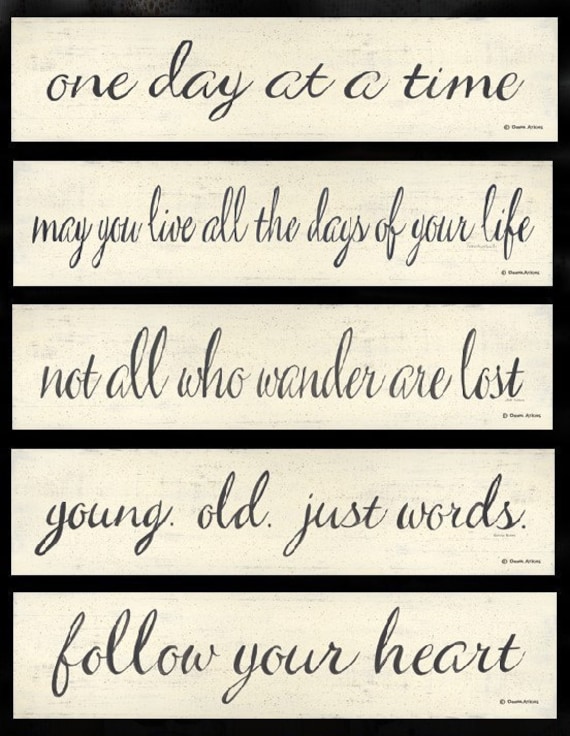 one day at a time
© Dawn Atkins
may you live all the days of your life
© Dawn Atkins
not all who wander are lost
© Dawn Atkins
young. old. just words.
© Dawn Atkins
follow your heart
© Dawn Atkins